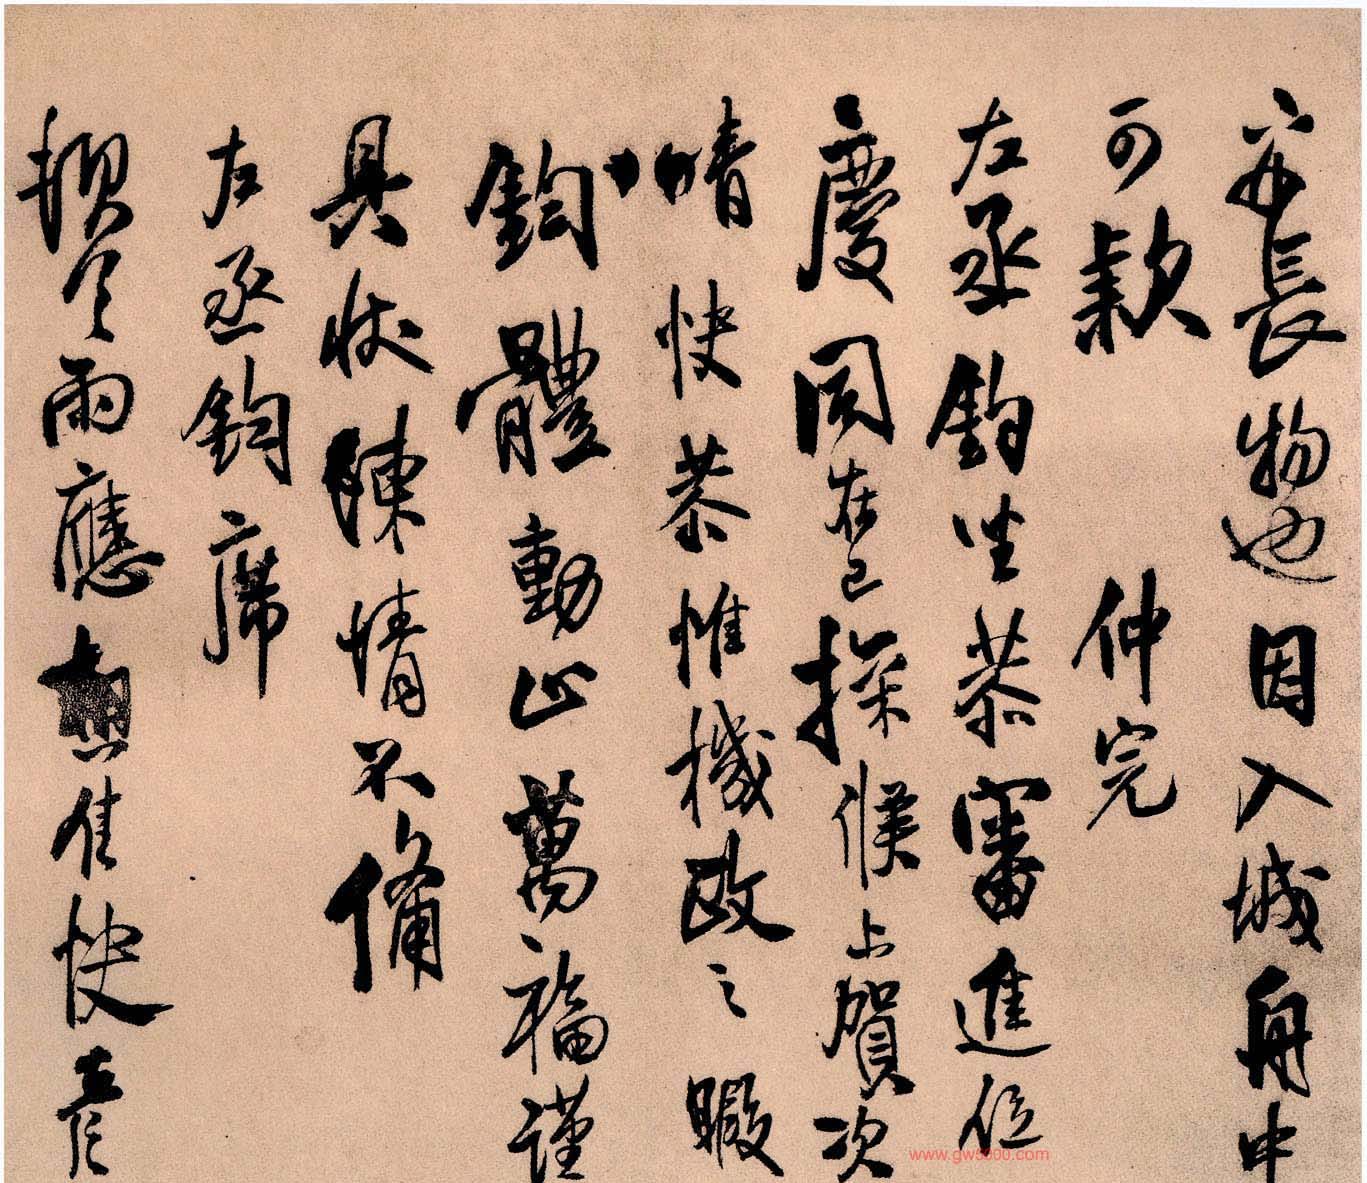 長物也因入城舟中
可款 仲完
左丞鈞坐恭審進位
慶同在已探候上賀次
晴快恭惟機政之暇
鈞體動止萬福謹
具狀陳情不備
左丞鈞席
雨應想佳快
www.gw5000.com